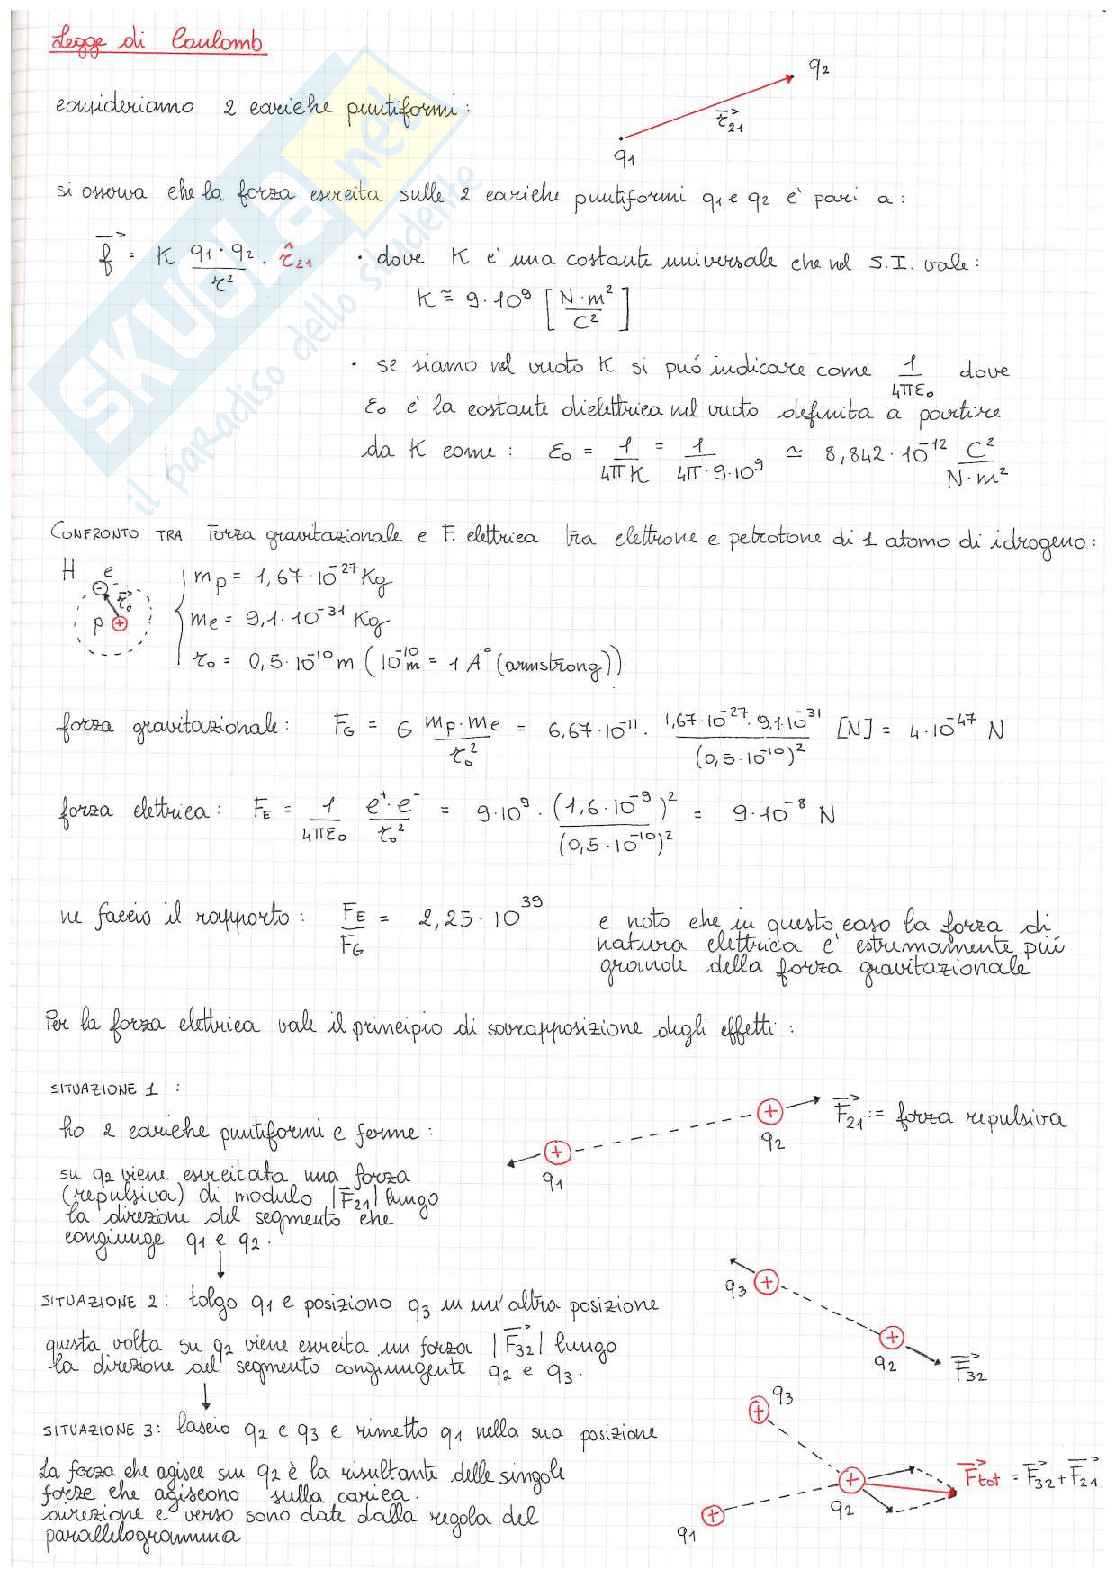 Legge di Coulomb
q2
consideriamo 2 cariche puntiformi:
r21
q1
si osserva che la forza esercita sulle 2 cariche puntiformi q1 e q2 è pari a:
f = K q1·q2/r² · r̂21 • dove K è una costante universale che nel S.I. vale:
K ≅ 9·10⁹ [N·m²/C²]
• se siamo nel vuoto K si può indicare come 1/4πε₀ dove
ε₀ è la costante dielettrica nel vuoto definita a partire
da K come: ε₀ = 1/4πK = 1/4π·9·10⁹ ≃ 8,842·10⁻¹² C²/N·m²
CONFRONTO TRA Forza gravitazionale e F. elettrica tra elettrone e petrotone di 1 atomo di idrogeno:
H e mp = 1,67·10⁻²⁷ Kg
r₀
p me = 9,1·10⁻³¹ Kg
r₀ = 0,5·10⁻¹⁰ m (10⁻¹⁰ m = 1 A° (armstrong))
forza gravitazionale: FG = G mp·me/r₀² = 6,67·10⁻¹¹ · 1,67·10⁻²⁷·9,1·10⁻³¹/(0,5·10⁻¹⁰)² [N] = 4·10⁻⁴⁷ N
forza elettrica: FE = 1/4πε₀ e⁺·e⁻/r₀² = 9·10⁹ · (1,6·10⁻⁹)²/(0,5·10⁻¹⁰)² = 9·10⁻⁸ N
ne faccio il rapporto: FE/FG = 2,25·10³⁹ e noto che in questo caso la forza di
natura elettrica è estremamente più
grande della forza gravitazionale
Per la forza elettrica vale il principio di sovrapposizione degli effetti:
SITUAZIONE 1 :
ho 2 cariche puntiformi e ferme:
F21 := forza repulsiva
q2
q1
su q2 viene esercitata una forza
(repulsiva) di modulo |F21| lungo
la direzione del segmento che
congiunge q1 e q2.
SITUAZIONE 2: tolgo q1 e posiziono q3 in un'altra posizione
q3
questa volta su q2 viene esercita un forza |F32| lungo
la direzione del segmento congiungente q2 e q3.
q2
F32
SITUAZIONE 3: lascio q2 e q3 e rimetto q1 nella sua posizione
q3
La forza che agisce su q2 è la risultante delle singole
forze che agiscono sulla carica.
direzione e verso sono date dalla regola del
parallelogramma
Ftot = F32 + F21
q2
q1
SKUOLA.net
il paradiso dello studente